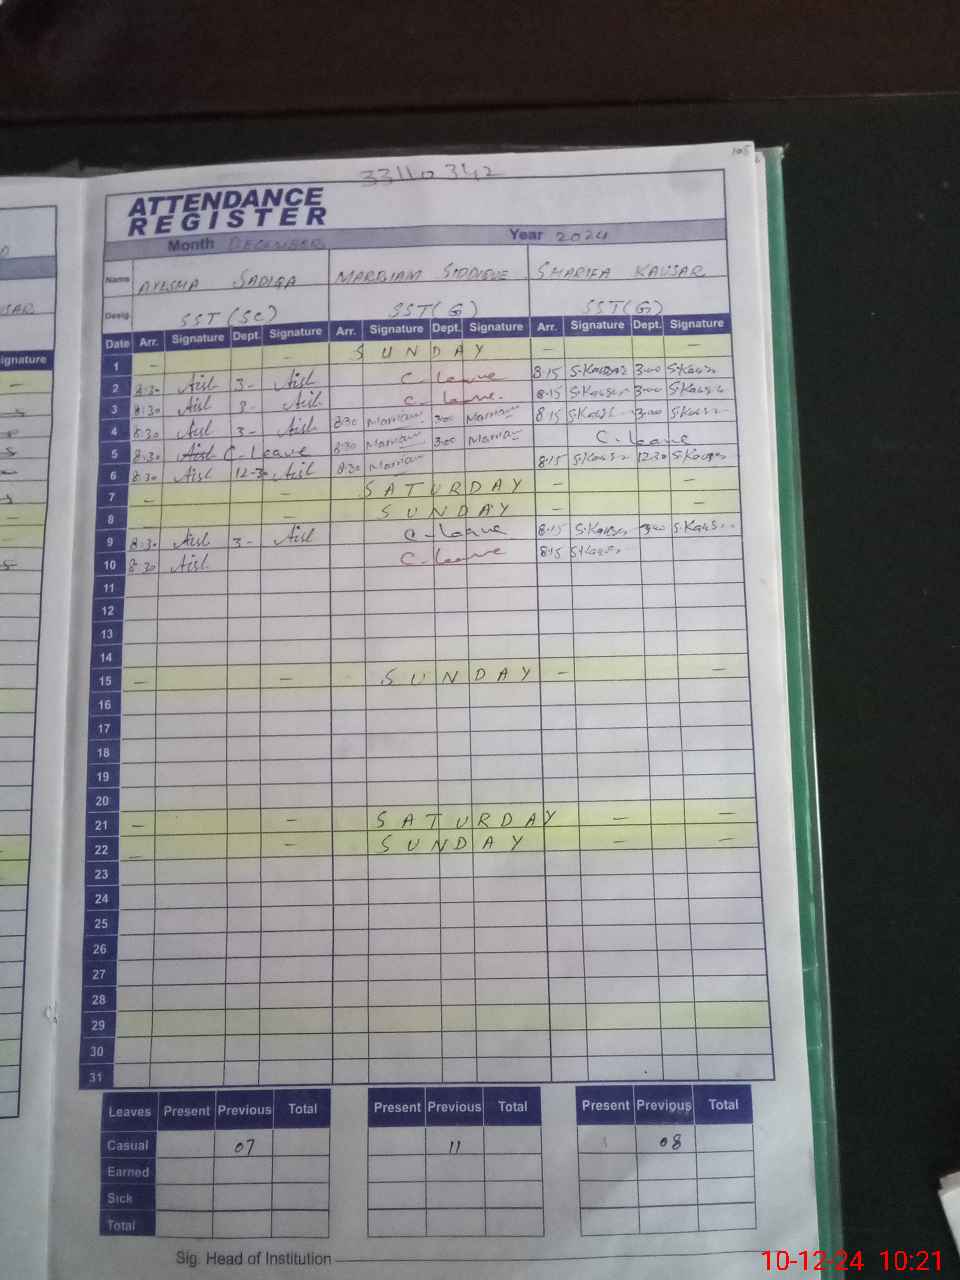 105
33110342
ATTENDANCE
REGISTER
Month DECEMBER Year 2024
Name AYESHA SADIQA MARRIAM SIDDIQUE SHARIFA KAUSAR
Desig. SST (SC) SST(G) SST(G)
Date Arr. Signature Dept. Signature Arr. Signature Dept. Signature Arr. Signature Dept. Signature
1 – – SUNDAY – –
2 8:30 Aisl 3- Aisl C-leave 8:15 S.Kausar 3:00 S.Kausar
3 8:30 Aisl 3- Aisl C-leave. 8:15 S.Kausar 3:00 S.Kausar
4 8:30 Aisl 3- Aisl 8:30 Marriam 3:00 Marriam 8:15 S.Kausar 3:00 S.Kausar
5 8:30 Aisl C-leave 8:30 Marriam 3:00 Marriam C-leave
6 8:30 Aisl 12-30 Aisl 8:30 Marriam 8:15 S.Kausar 12:30 S.Kausar
7 – – SATURDAY – –
8 – – SUNDAY – –
9 8:30 Aisl 3- Aisl C-leave 8:15 S.Kausar 3:00 S.Kausar
10 8:30 Aisl C-leave 8:15 S.Kausar
11
12
13
14
15 – – SUNDAY – –
16
17
18
19
20
21 – – SATURDAY – –
22 – – SUNDAY – –
23
24
25
26
27
28
29
30
31
Leaves Present Previous Total Present Previous Total Present Previous Total
Casual 07 11 08
Earned
Sick
Total
Sig. Head of Institution
10-12-24 10:21